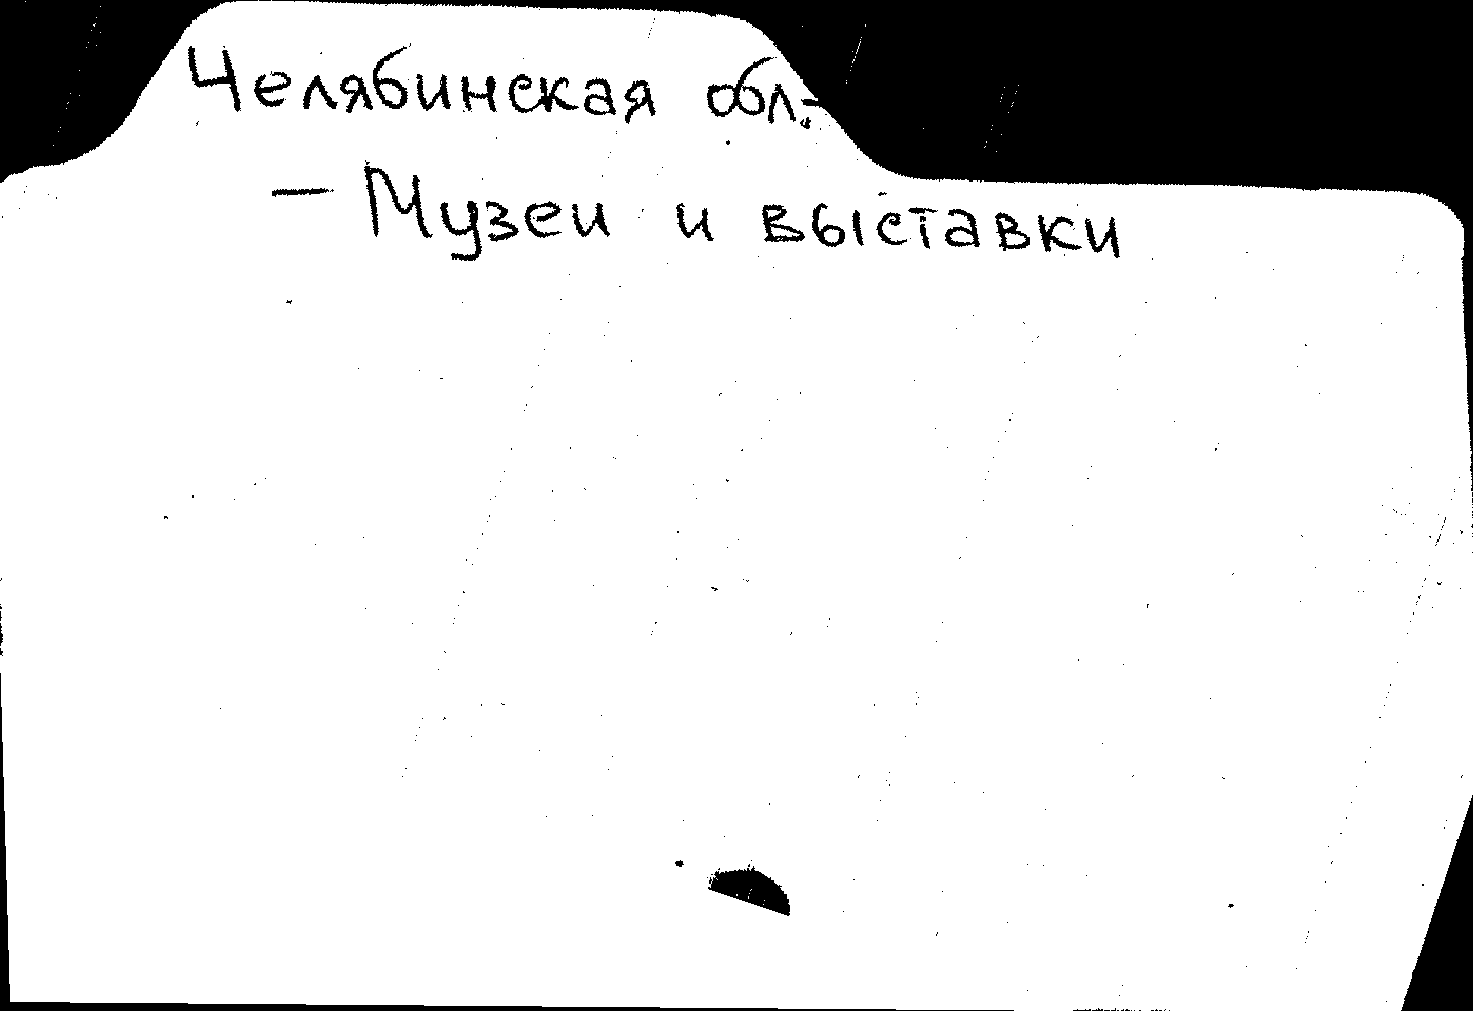 Челябинская обл.-
- Музеи и выставки